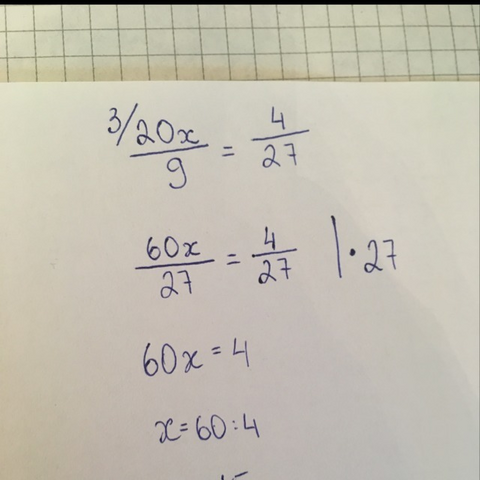 3/20x/9 = 4/27
60x/27 = 4/27 | · 27
60x = 4
x = 60 : 4